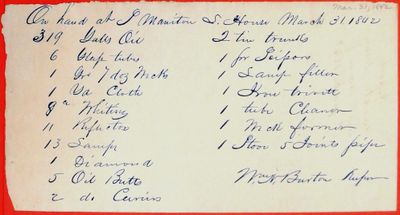 Mar. 31, 1862
On hand at S Manitou L. House March 31 1862
319 Galls Oil
6 Glass tubes
1 Gro 7 doz Wicks
1 Yd Cloth
8 " Whiting
11 Reflector
13 Lamps
1 Diamond
5 Oil Butts
2 do Covers
2 tin trunks
1 pr Scissors
1 Lamp filler
1 Iron trivit
1 tube Cleaner
1 Wick former
1 Stove 5 Joints pipe
Burton Keeper